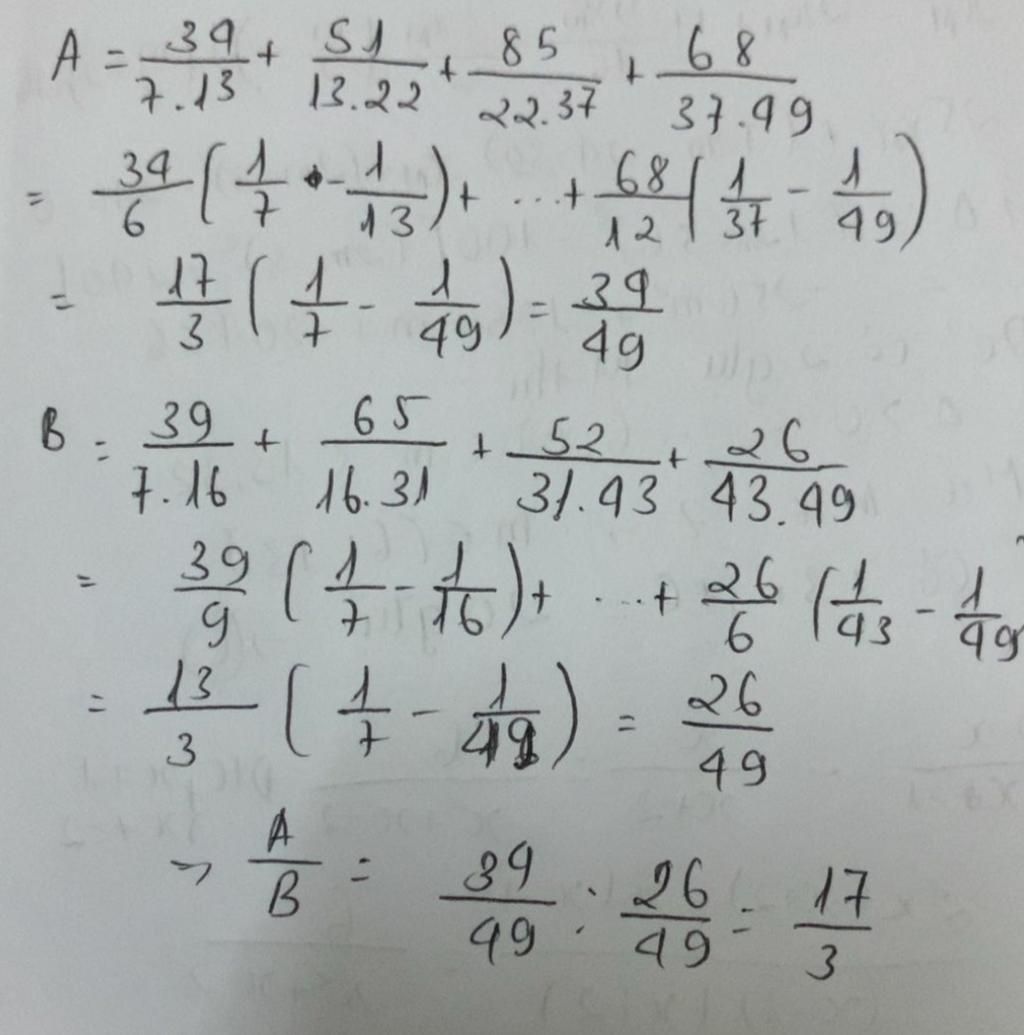 A = 34/7.13 + 51/13.22 + 85/22.37 + 68/37.49
= 34/6 ( 1/7 - 1/13 ) + ... + 68/12 ( 1/37 - 1/49 )
= 17/3 ( 1/7 - 1/49 ) = 34/49
B = 39/7.16 + 65/16.31 + 52/31.43 + 26/43.49
= 39/9 ( 1/7 - 1/16 ) + ... + 26/6 ( 1/43 - 1/49
= 13/3 ( 1/7 - 1/49 ) = 26/49
→ A/B = 34/49 : 26/49 = 17/3